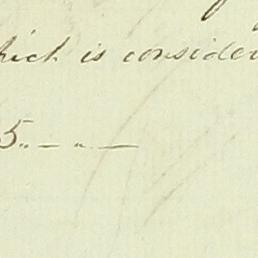 which is consider
5..—..—